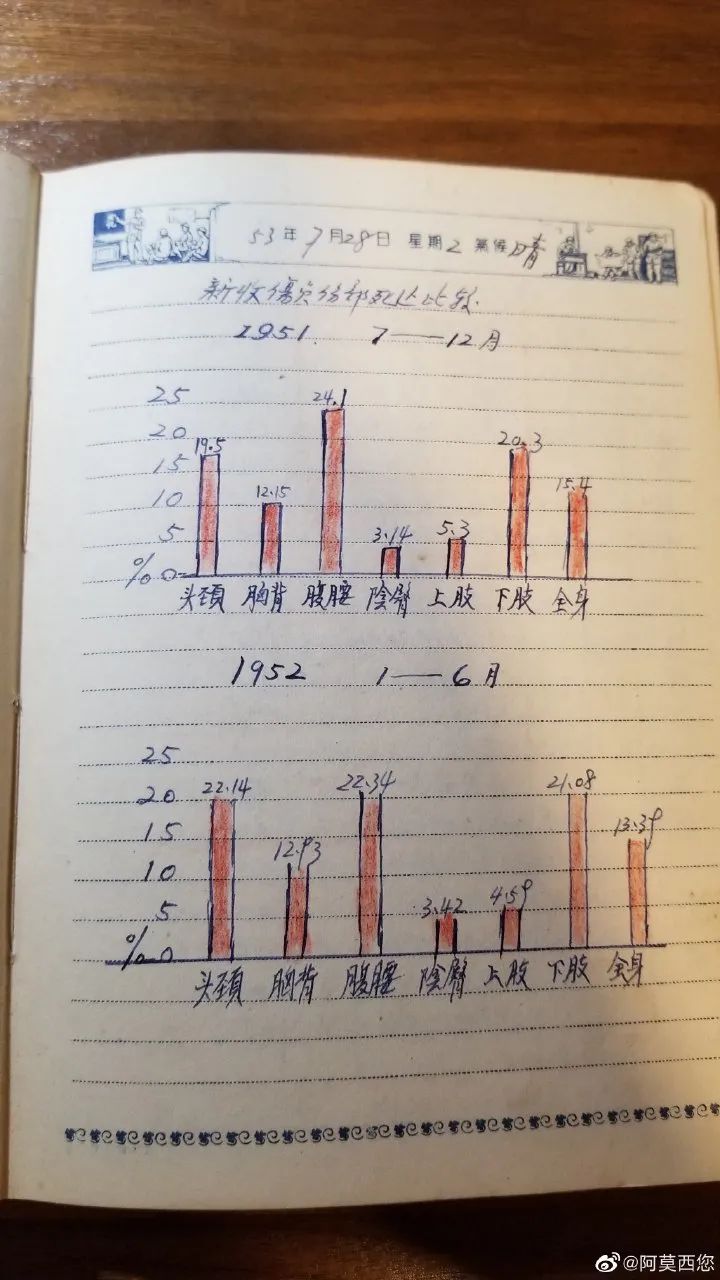 53年7月28日 星期2 氣候晴
新收傷员伤部配比比較
1951. 7——12月
25
20
15
10
5
%0
19.5 12.15 24.1 3.14 5.3 20.3 15.4
头颈 胸背 腹腰 陰臀 上肢 下肢 全身
1952 1——6月
25
20
15
10
5
%0
22.14 12.93 22.34 3.42 4.59 21.08 13.39
头颈 胸背 腹腰 陰臀 上肢 下肢 全身
@阿莫西您